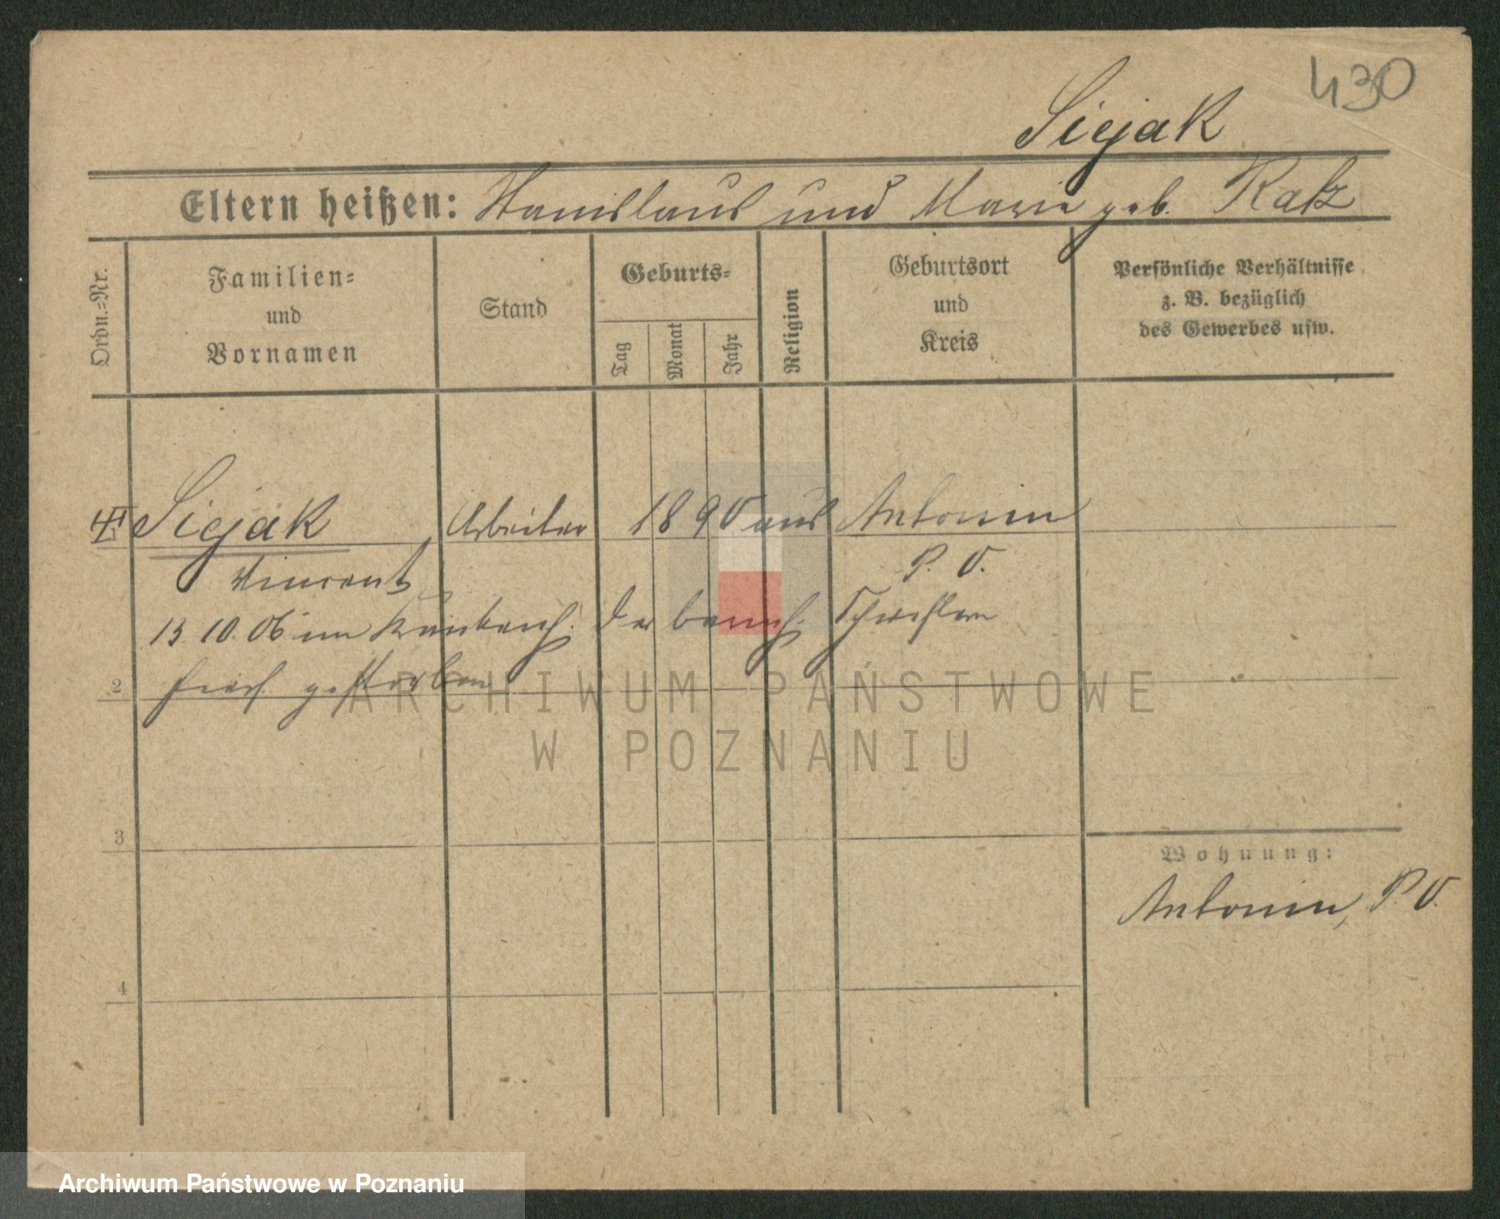 430
Siejak
Eltern heißen: Stanislaus und Marie geb. Ratz
Ordn.=Nr.
Familien=
und
Vornamen
Stand
Geburts=
Tag
Monat
Jahr
Religion
Geburtsort
und
Kreis
Persönliche Verhältnisse
z. B. bezüglich
des Gewerbes usw.
Siejak Arbeiter 1890 aus Antonin
Vincent P. O.
13.10.06 im Krankenh. der barmh. Schwestern
hier gestorben
2
ARCHIWUM PAŃSTWOWE
W POZNANIU
3
Wohnung:
Antonin, P. O.
4
Archiwum Państwowe w Poznaniu